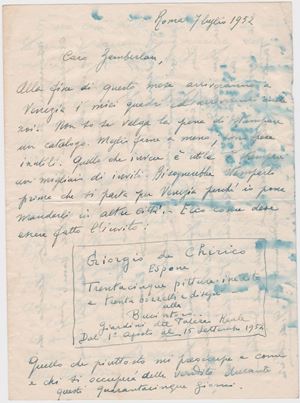 Roma 7 luglio 1952
Caro Zamberlan,
Alla fine di questo mese arriveranno a
Venezia i miei quadri
. Non so se valga la pena di stampare
un catalogo. Meglio farne a meno, sono spese
inutili. Quello che invece è utile è stampare
un migliaio di inviti. Bisognerebbe stamparli
prima che si parta per Venezia perchè io possa
mandarli in altre città. Ecco come deve
essere fatto l'invito:
Giorgio de Chirico
Espone
Trentacinque pitture inedite
e trenta bozzetti e disegni
alla
Bucintoro
Giardini del Palazzo Reale
Dal 1º Agosto al 15 Settembre 1952
Quello che piuttosto mi preoccupa è come
e chi si occuperà delle vendite durante
questi quarantacinque giorni.